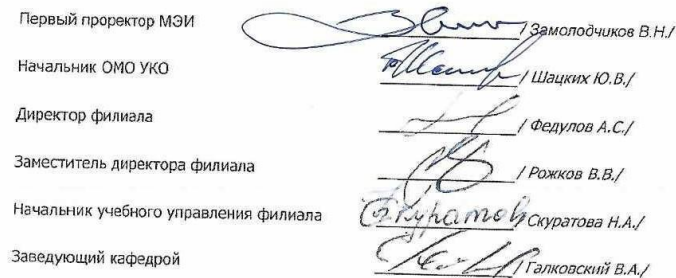 Первый проректор МЭИ /Замолодчиков В.Н./
Начальник ОМО УКО / Шацких Ю.В./
Директор филиала / Федулов А.С./
Заместитель директора филиала / Рожков В.В./
Начальник учебного управления филиала /Скуратова Н.А./
Заведующий кафедрой /Галковский В.А./